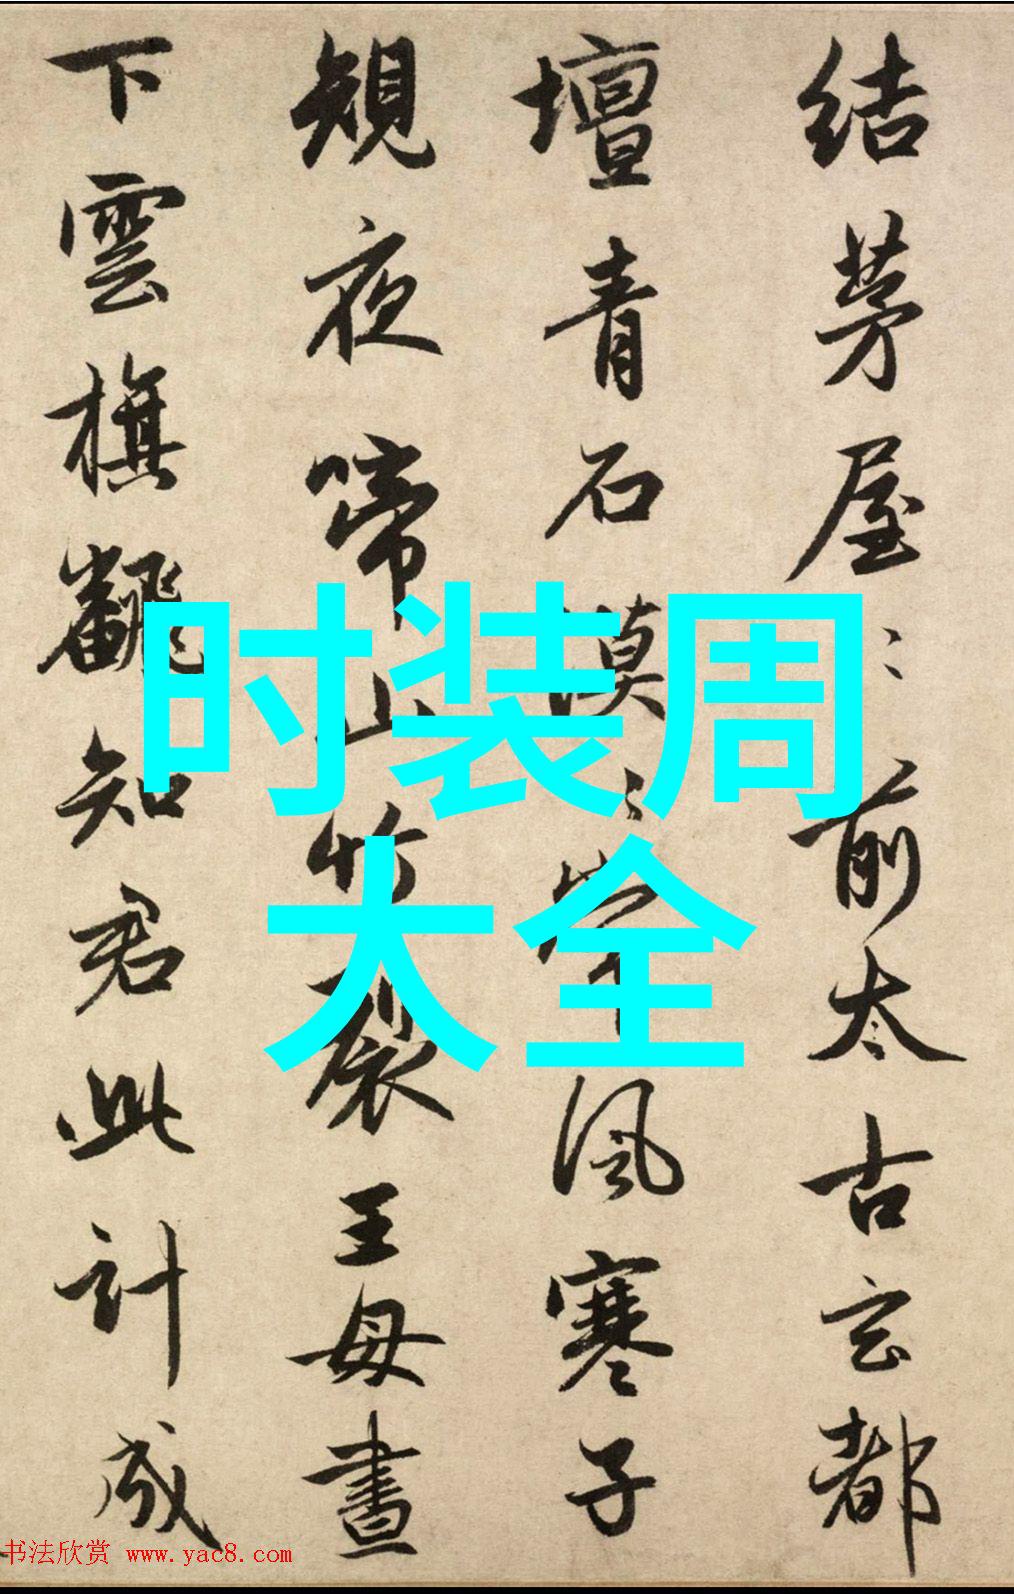 结茅屋〻前太古玄都
壇青石漠〻常風寒子
䂓夜啼山竹裂王母晝
下雲旗飜知君此計成
时装周
大全
书法欣赏 www.yac8.com